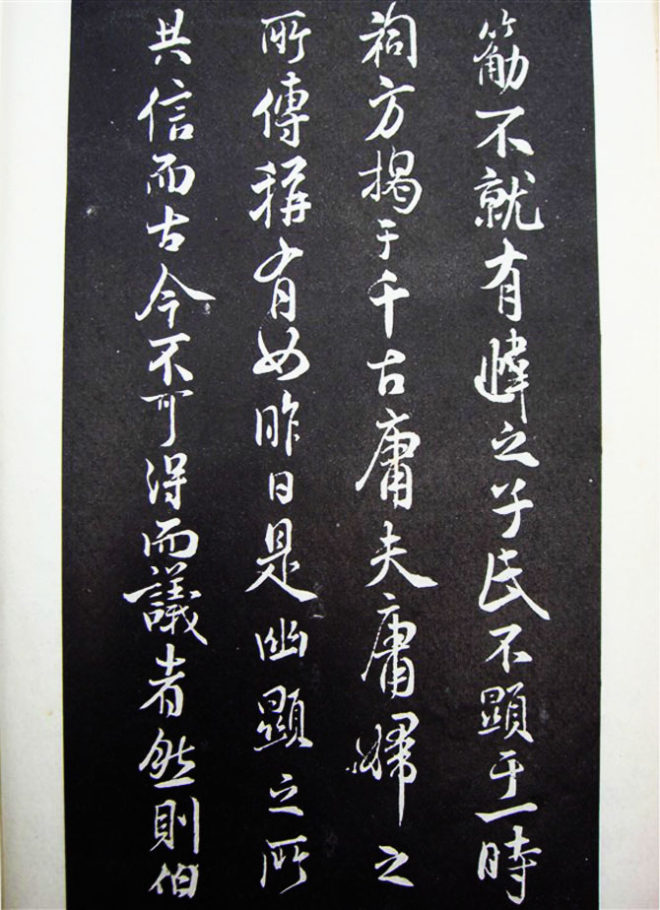 筋不就有韡之孚民不顕于一時
祠方揭于千古庸夫庸婦之
所傳稱有如昨日是幽顕之所
共信而古今不可得而議者然則伯